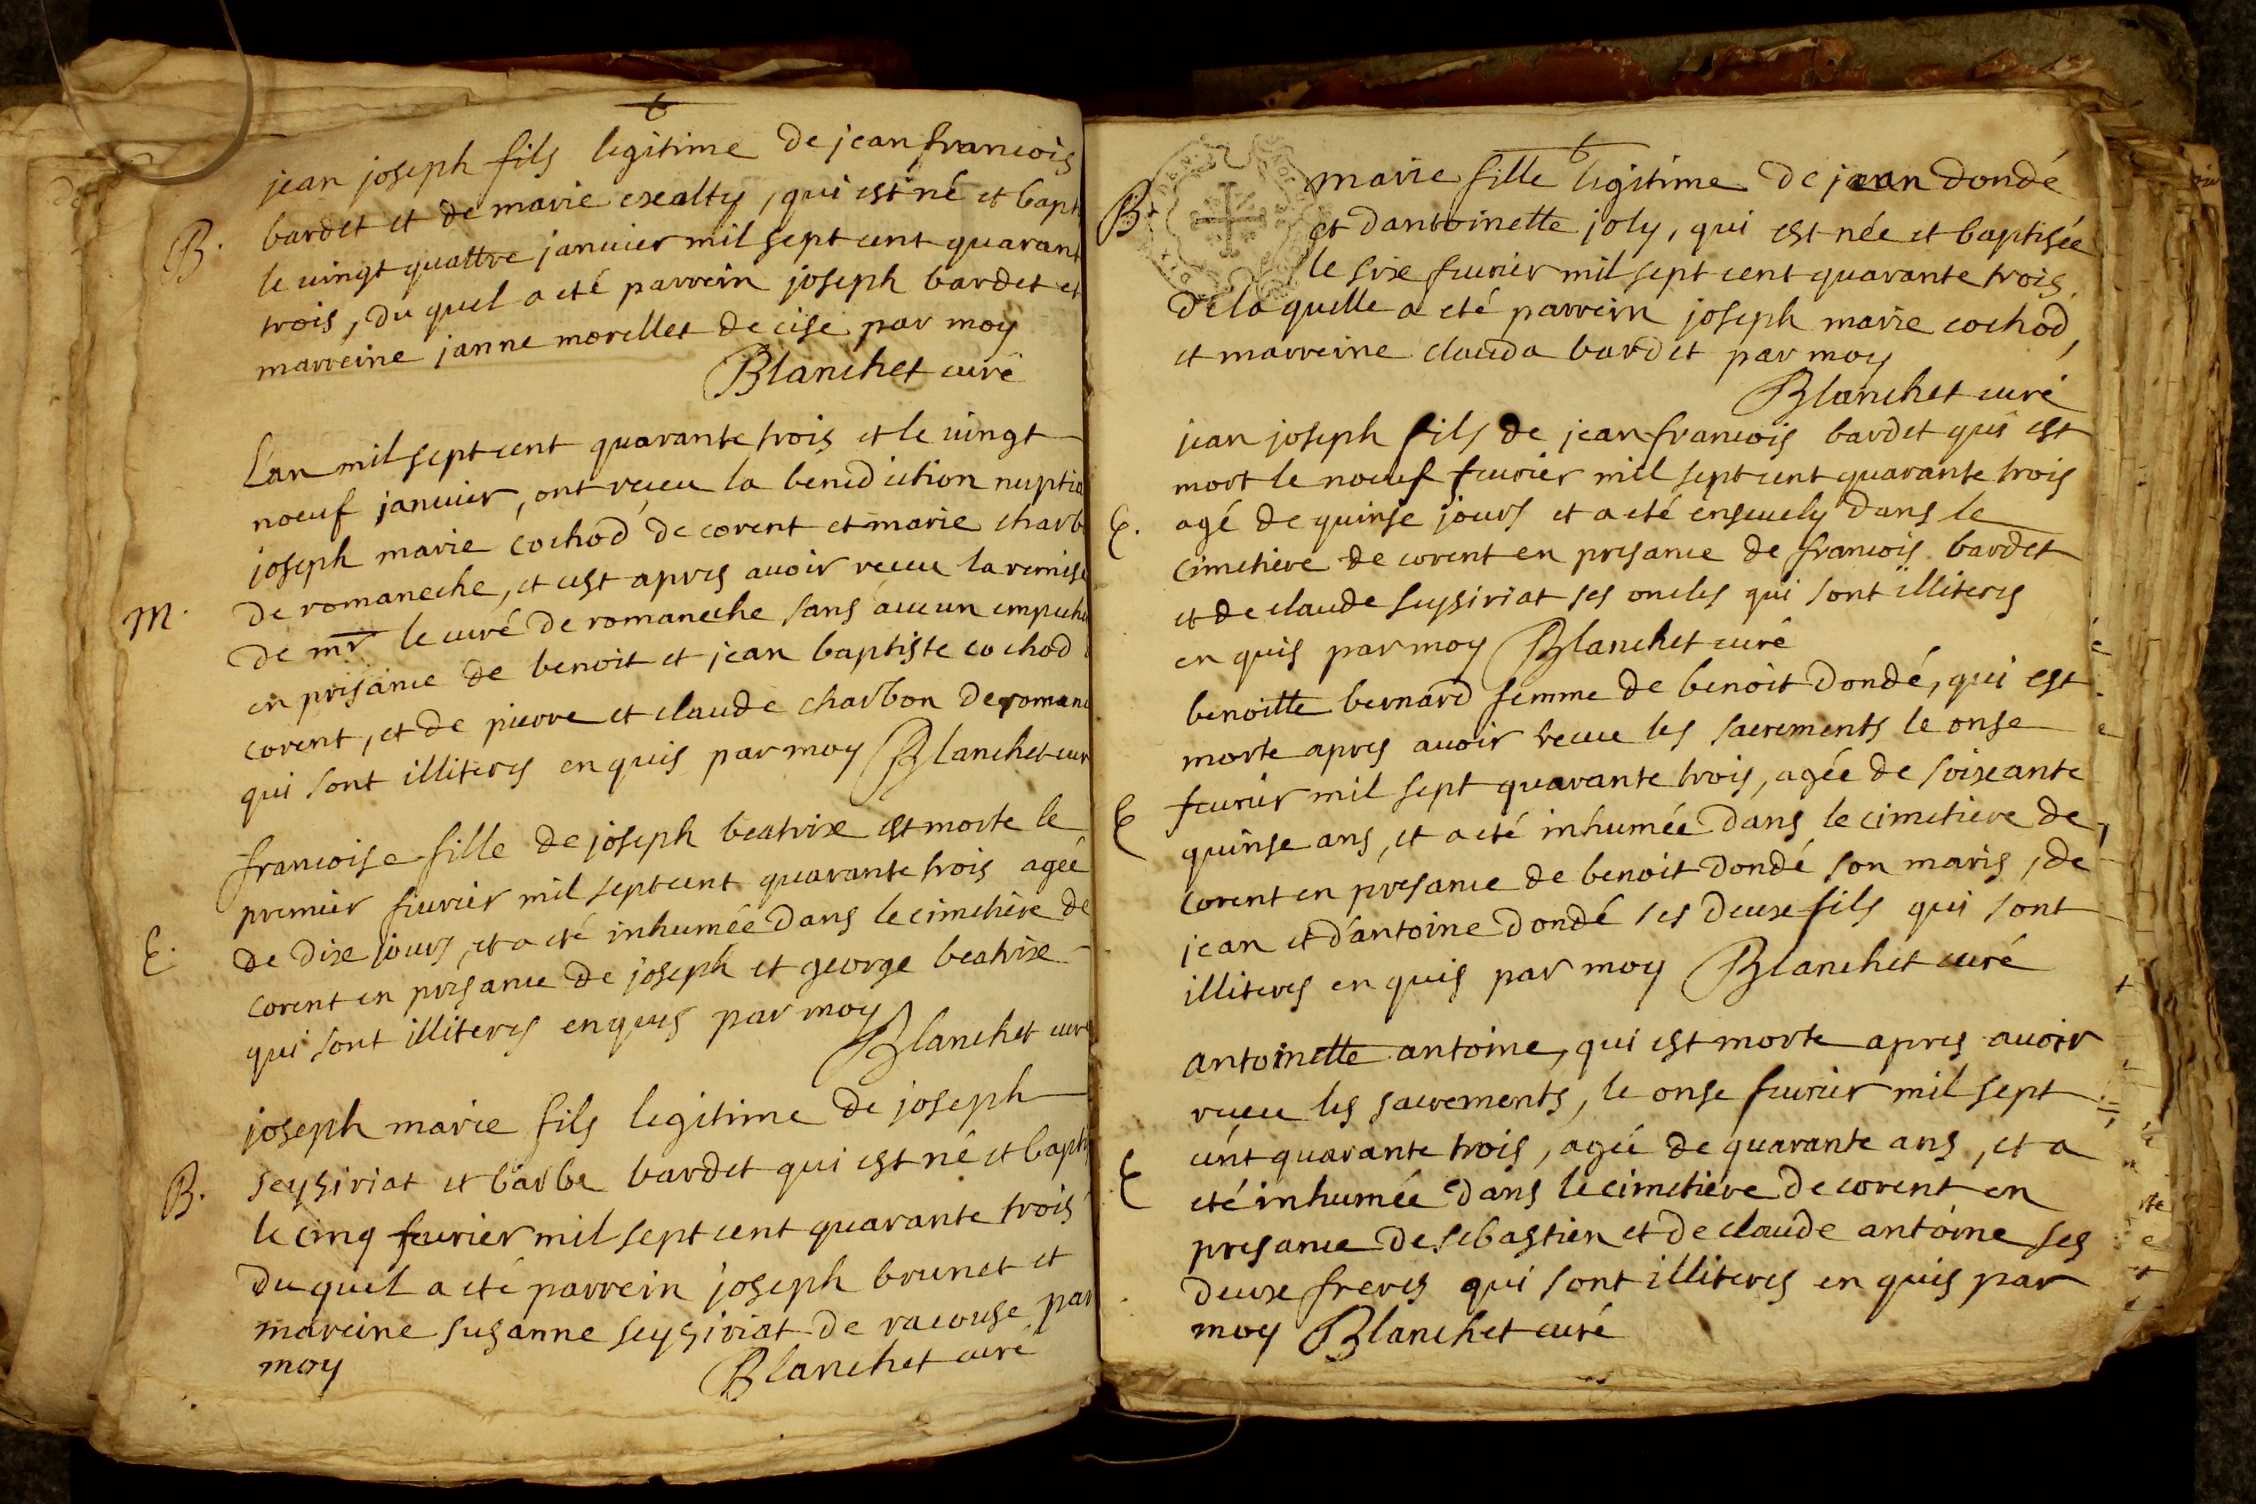 jean joseph fils legitime de jean francois
B. bardet et de marie exealty, qui est né et bapt
le uingt quattre januier mil sept cent quarant
trois, du quel a eté parrein joseph bardet et
marreine janne morellet de cise par moy
Blanchet curé
L'an mil sept cent quarante trois et le uingt
noeuf januier, ont receu la benediction nuptia
joseph marie cochod de corent et marie charb
M. de romaneche, et c'est apres auoir receu la remise
de mr le curé de romaneche sans aucun empeche
en presance de benoit et jean baptiste cochod
corent, et de pierre et claude charbon de romane
qui sont illiteres en quis par moy Blanchet cur
francoise fille de joseph beatrixe est morte le
premier feurier mil sept cent quarante trois agée
E. de dixe jours, et a eté inhumée dans le cimetiere de
corent en presance de joseph et george beatrixe
qui sont illiteres enquis par moy
Blanchet curé
joseph marie fils legitime de joseph
B. seysiriat et barbe bardet qui est né et bapti
le cinq feurier mil sept cent quarante trois
du quel a eté parrein joseph brunet et
mareine susanne seysiriat de racouse par
moy Blanchet curé
6
marie fille legitime de jean dondé
B. et d'antoinette joly, qui est née et baptisée
le sixe feurier mil sept cent quarante trois
de la quelle a eté parrein joseph marie cochod,
et marreine clauda bardet par moy
Blanchet curé
jean joseph fils de jean francois bardet qui est
mort le noeuf feurier mil sept cent quarante trois
E. agé de quinse jours et a eté enseuely dans le
cimetiere de corent en presance de francois bardet
et de claude seysiriat ses oncles qui sont illiteres
en quis par moy Blanchet curé
benoitte bernard femme de benoit dondé, qui est
morte apres auoir receu les sacrements le onse
E feurier mil sept quarante trois, agée de soixeante
quinse ans, et a eté inhumée dans le cimetiere de
corent en presance de benoit dondé son maris, de
jean et d'antoine dondé ses deuxe fils qui sont
illiteres en quis par moy Blanchet curé
antoinette antoine, qui est morte apres auoir
receu les sacrements, le onse feurier mil sept
E cént quarante trois, agée de quarante ans, et a
eté inhumée dans le cimetiere de corent en
presance de sebastien et de claude antoine ses
deuxe freres qui sont illiteres en quis par
moy Blanchet curé